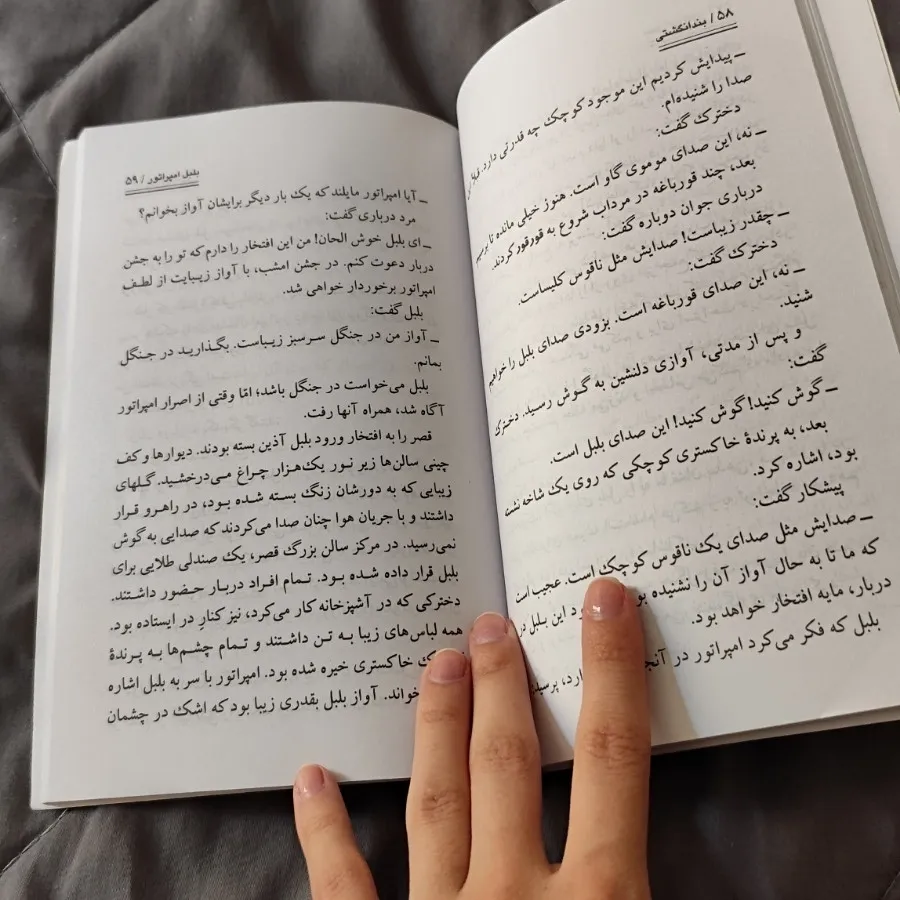 ۵۸ / بندانگشتی
ـ پیدایش کردیم این موجود کوچک چه قدرتی دارد.
صدا را شنیده‌ام.
دخترک گفت:
ـ نه، این صدای موموی گاو است. هنوز خیلی مانده تا برسیم
بعد، چند قورباغه در مرداب شروع به قورقور کردند.
درباری جوان دوباره گفت:
ـ چقدر زیباست! صدایش مثل ناقوس کلیساست.
دخترک گفت:
ـ نه، این صدای قورباغه است. بزودی صدای بلبل را خواهیم
شنید.
و پس از مدتی، آوازی دلنشین به گوش رسید. دخترک
گفت:
ـ گوش کنید! گوش کنید! این صدای بلبل است.
بعد، به پرندهٔ خاکستری کوچکی که روی یک شاخه نشسته
بود، اشاره کرد.
پیشکار گفت:
ـ صدایش مثل صدای یک ناقوس کوچک است. عجیب است
که ما تا به حال آواز آن را نشنیده این بلبل در
دربار، مایه افتخار خواهد بود.
بلبل که فکر می‌کرد امپراتور در پرسید:
بلبل امپراتور / ۵۹
ـ آیا امپراتور مایلند که یک بار دیگر برایشان آواز بخوانم؟
مرد درباری گفت:
ـ ای بلبل خوش الحان! من این افتخار را دارم که تو را به جشن
دربار دعوت کنم. در جشن امشب، با آواز زیبایت از لطف
امپراتور برخوردار خواهی شد.
بلبل گفت:
ـ آواز من در جنگل سرسبز زیباست. بگذارید در جنگل
بمانم.
بلبل می‌خواست در جنگل باشد؛ امّا وقتی از اصرار امپراتور
آگاه شد، همراه آنها رفت.
قصر را به افتخار ورود بلبل آذین بسته بودند. دیوارها و کف
چینی سالن‌ها زیر نور یک‌هزار چراغ می‌درخشید. گلهای
زیبایی که به دورشان زنگ بسته شده بود، در راهرو قرار
داشتند و با جریان هوا چنان صدا می‌کردند که صدایی به گوش
نمی‌رسید. در مرکز سالن بزرگ قصر، یک صندلی طلایی برای
بلبل قرار داده شده بود. تمام افراد دربار حضور داشتند.
دخترکی که در آشپزخانه کار می‌کرد، نیز کنار در ایستاده بود.
همه لباس‌های زیبا به تن داشتند و تمام چشم‌ها به پرندهٔ
خاکستری خیره شده بود. امپراتور با سر به بلبل اشاره
آواز بلبل بقدری زیبا بود که اشک در چشمان